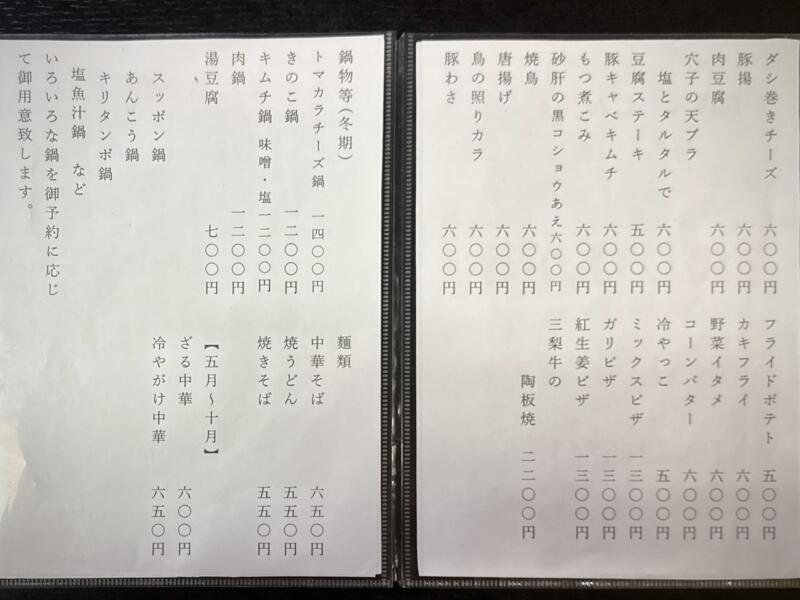 ダシ巻きチーズ 六〇〇円
豚揚 六〇〇円
肉豆腐 六〇〇円
穴子の天プラ
塩とタルタルで 六〇〇円
豆腐ステーキ 五〇〇円
豚キャベキムチ 六〇〇円
もつ煮こみ 六〇〇円
砂肝の黒コショウあえ 六〇〇円
焼鳥 六〇〇円
唐揚げ 六〇〇円
鳥の照りカラ 六〇〇円
豚わさ 六〇〇円
フライドポテト 五〇〇円
カキフライ 六〇〇円
野菜イタメ 六〇〇円
コーンバター 六〇〇円
冷やっこ 五〇〇円
ミックスピザ 一三〇〇円
ガリピザ 一三〇〇円
紅生姜ピザ 一三〇〇円
三梨牛の
陶板焼 二二〇〇円
鍋物等(冬期)
トマカラチーズ鍋 一四〇〇円
きのこ鍋 一二〇〇円
キムチ鍋 味噌・塩 一二〇〇円
肉鍋 一二〇〇円
湯豆腐 七〇〇円
スッポン鍋
あんこう鍋
キリタンポ鍋
塩魚汁鍋 など
いろいろな鍋を御予約に応じ
て御用意致します。
麺類
中華そば 六五〇円
焼うどん 五五〇円
焼きそば 五五〇円
【五月~十月】
ざる中華 六〇〇円
冷やがけ中華 六五〇円